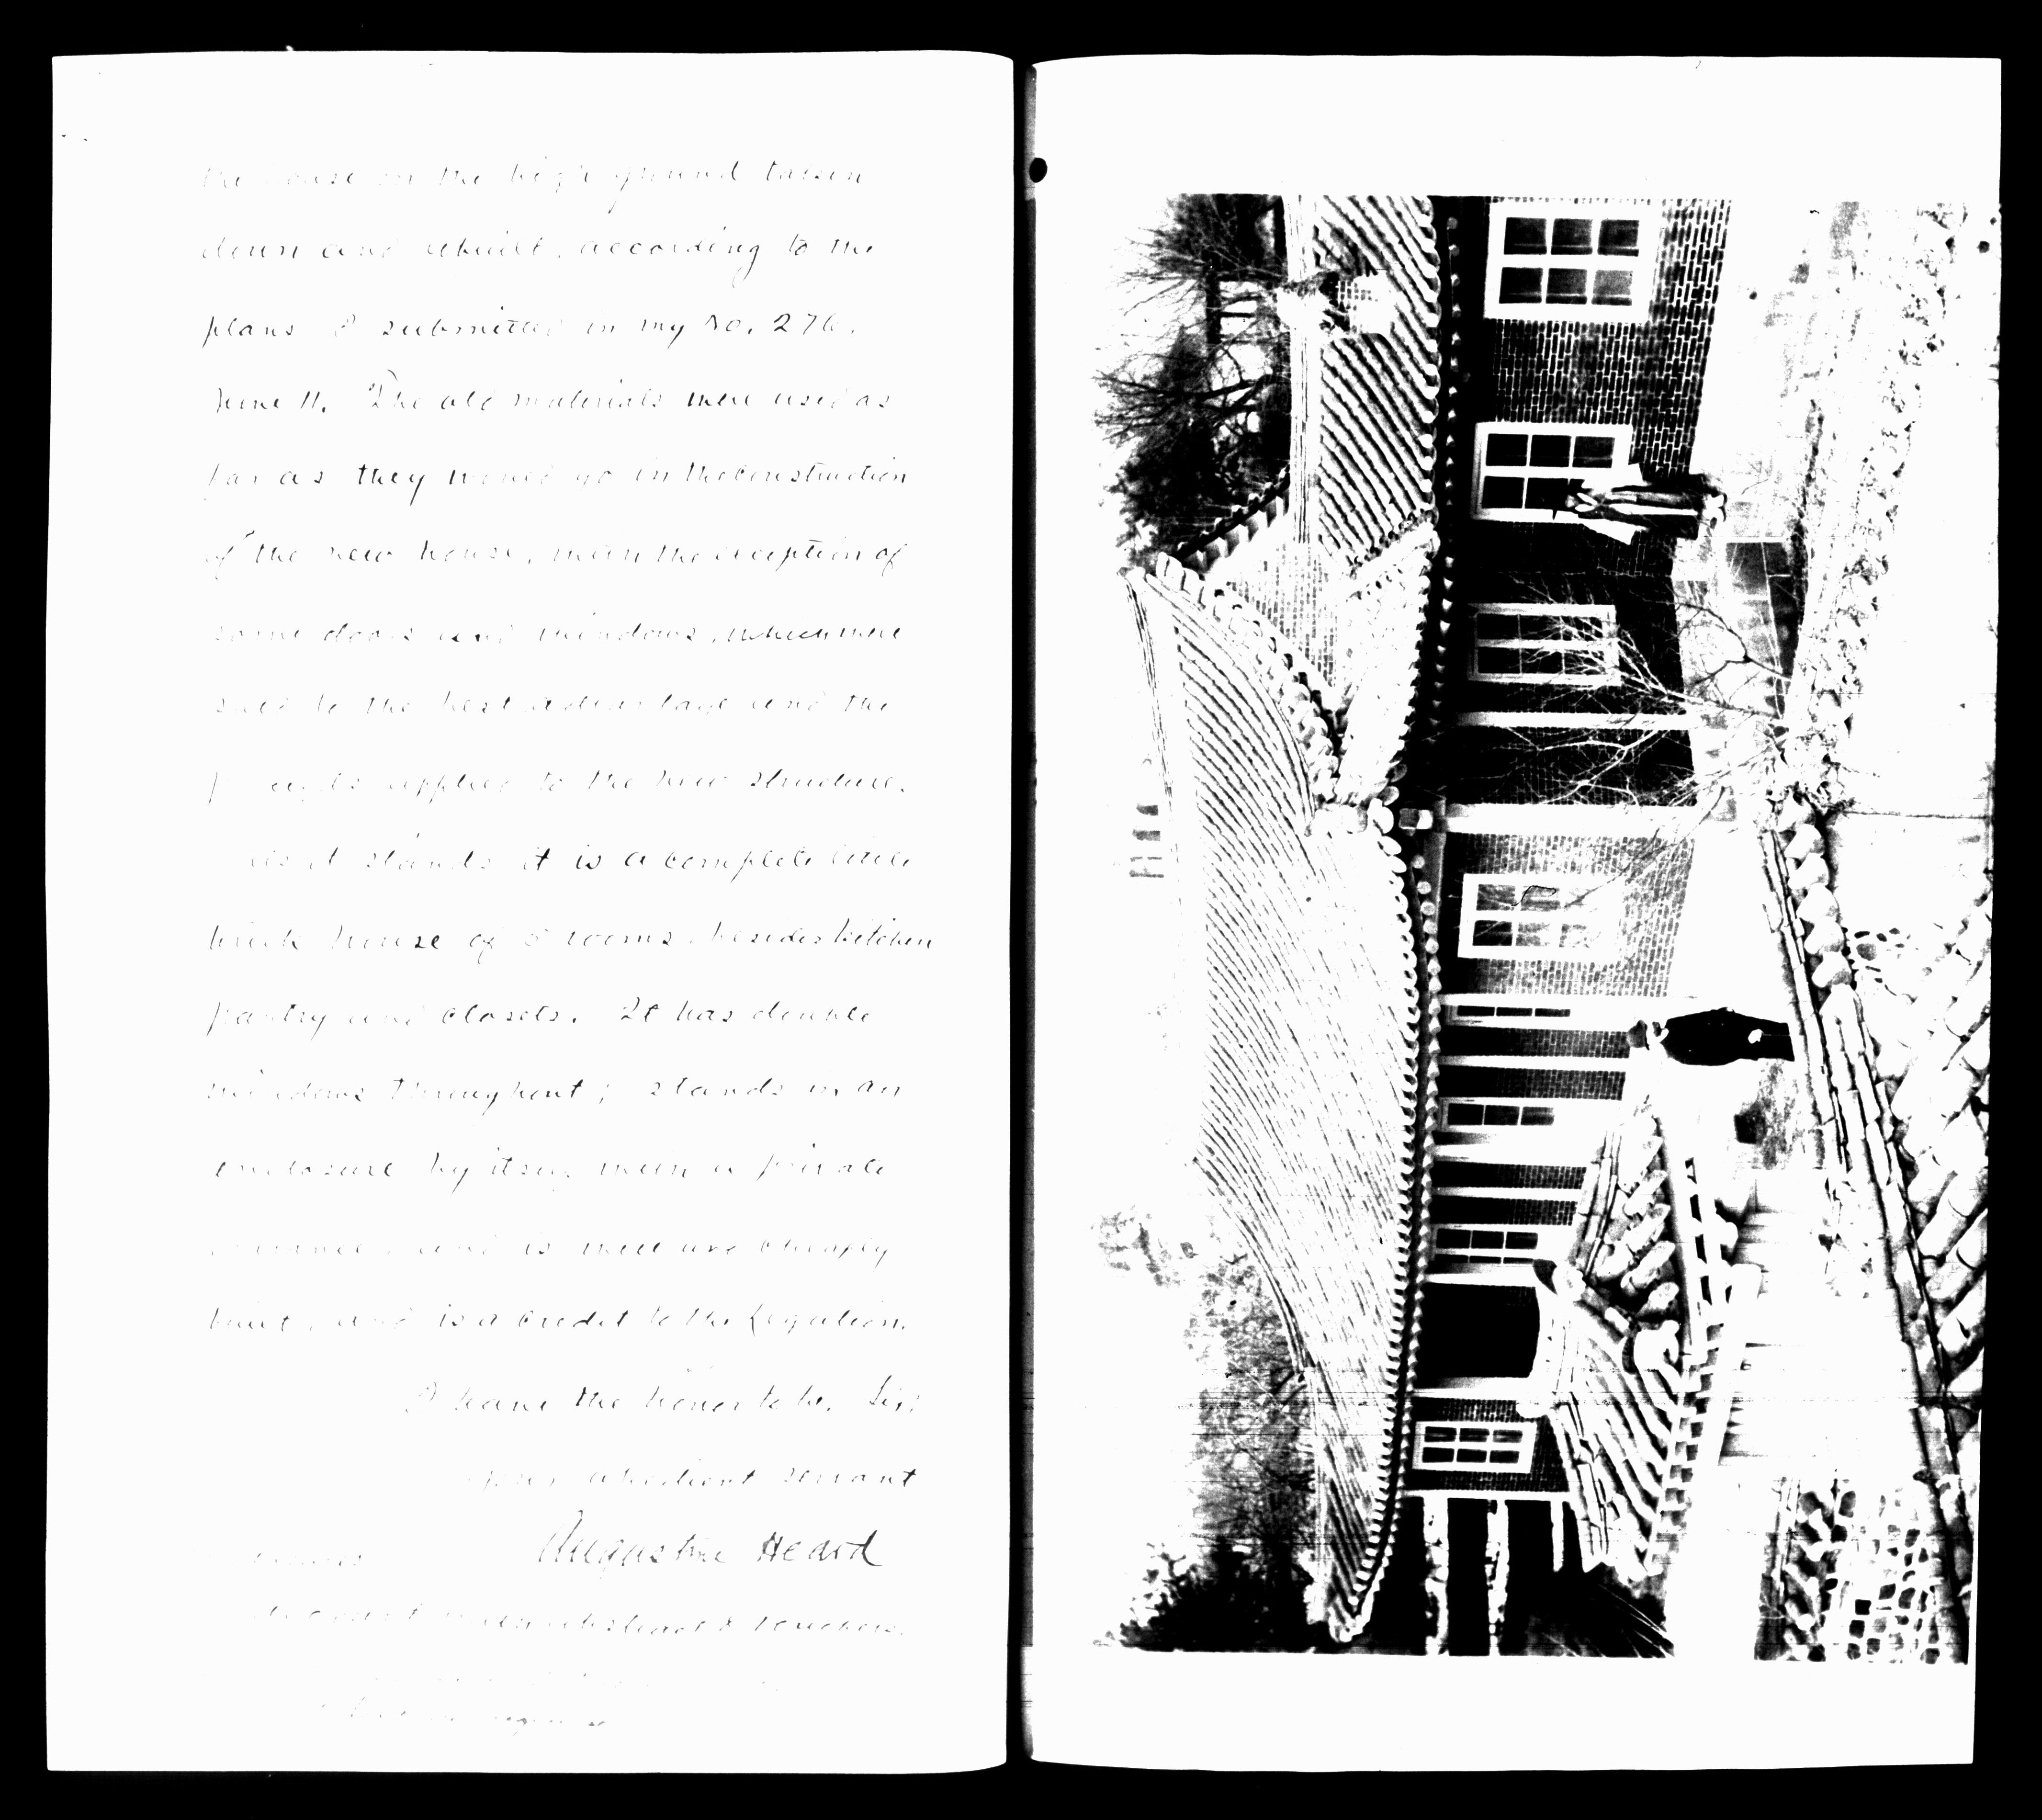 the house on the high ground taken
down and rebuilt, according to the
plans I submitted in my No. 276.
June 11. The old materials were used as
far as they would go in the construction
of the new house, with the exception of
some doors and windows, which were
sold to the best advantage and the
applied to the new structure.
As it stands it is a complete little
brick house of rooms, besides kitchen
pantry and closets. It has double
windows throughout; stands in an
enclosure by itself with a private
entrance, and is well and cheaply
built, and is a credit to the Legation.
I have the honor to be, Sir,
your obedient servant
Augustine Heard
vouchers.